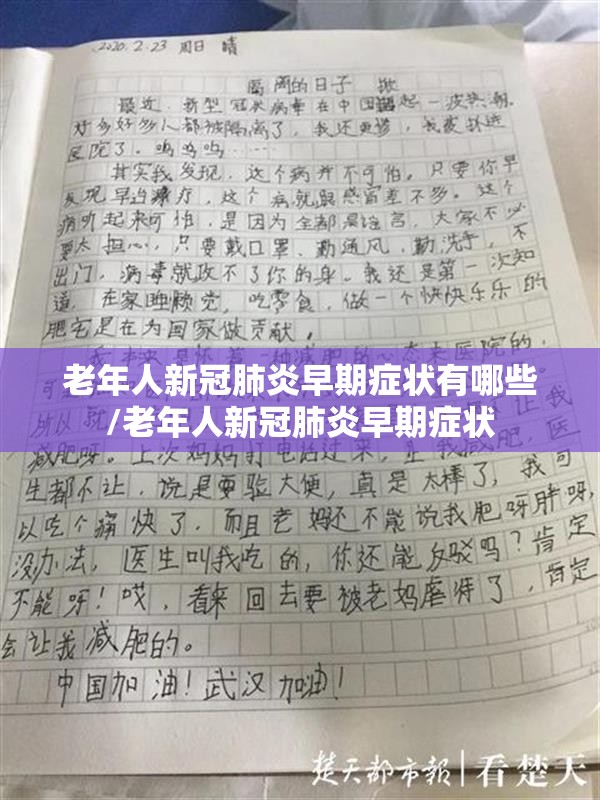 2020.2.23 周日 晴
隔离的日子
最近,新型冠状病毒在中国掀起一波热潮,
好多好多人都被隔离了,我还更惨,我被抓进
医院了。呜呜呜……
其实我发现,这个病并不可怕。只要你早
发现早治疗,这个病就跟感冒差不多。这个
病听起来可怕,是因为全都是谣言,大家不必
要太担心,只要戴口罩、勤通风,勤洗手,不
出门,病毒就改不了你的身。我还是第一次知
道,在家睡懒觉,吃零食,做一个快快乐乐的
肥宅是在为国家做贡献。
心态来医院的,
老年人新冠肺炎早期症状有哪些
/老年人新冠肺炎早期症状
减肥呀。上次妈妈打电话过来,让我减肥,医
生都不让,说是要验大便,真是太棒了,我可
以吃个痛快了,而且老妈还不能说我肥呀胖呀,
没办法,医生叫我吃的,你还能反驳吗?肯定
不能呀!哎,看来回去要被老妈虐待了,肯定
会让我减肥的。
中国加油!武汉加油!
楚天都市报|看楚天